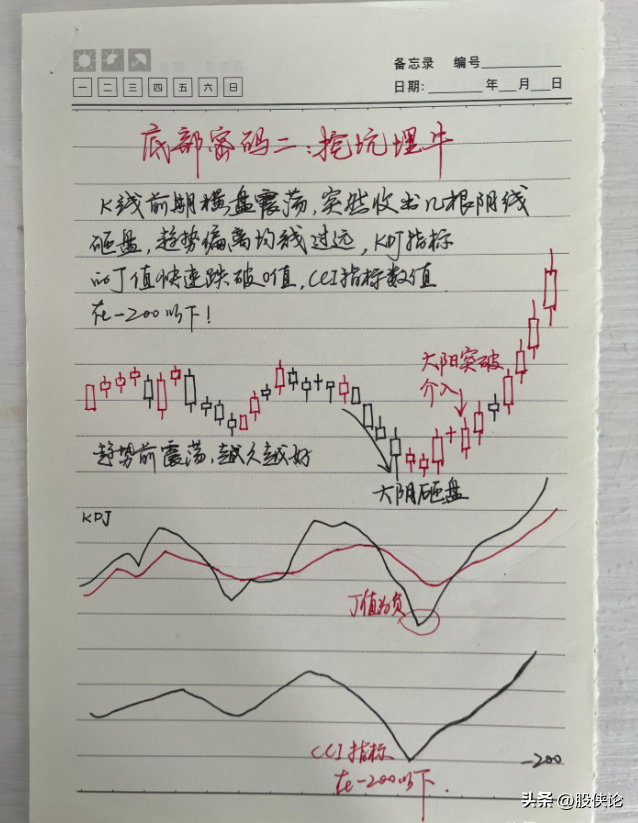 备忘录 编号
一 二 三 四 五 六 日
日期: 年 月 日
底部密码二:挖坑埋牛
K线前期横盘震荡,突然收出几根阴线
砸盘,趋势偏离均线过远,KDJ指标
的J值快速跌破0值,CCI指标数值
在-200以下!
大阳突破
介入
趋势前震荡,越久越好
大阴砸盘
KDJ
J值为负
CCI指标
-200
在-200以下.
头条 @股侠论